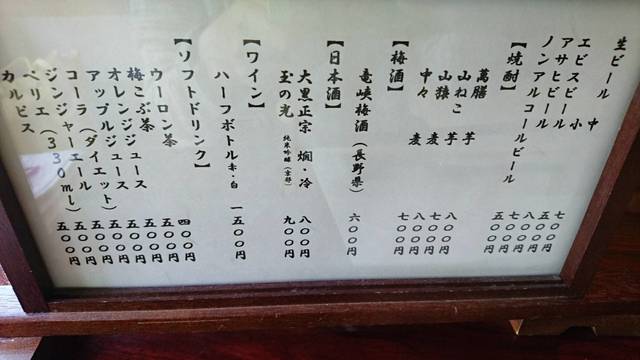 生ビール 中 七〇〇円
小 五〇〇円
エビスビール 八〇〇円
アサヒビール 七〇〇円
ノンアルコールビール 五〇〇円
【焼酎】
萬膳 芋 八〇〇円
山ねこ 芋 七〇〇円
山猿 麦 八〇〇円
中々 麦 七〇〇円
【梅酒】
竜峡梅酒（長野県） 六〇〇円
【日本酒】
大黒正宗 燗・冷 八〇〇円
玉の光 純米吟醸（京都） 九〇〇円
【ワイン】
ハーフボトル 赤・白 一五〇〇円
【ソフトドリンク】
ウーロン茶 四〇〇円
梅こぶ茶 五〇〇円
オレンジジュース 五〇〇円
アップルジュース 五〇〇円
コーラ（ダイエット） 五〇〇円
ジンジャーエール 五〇〇円
ペリエ（330ml） 五〇〇円
カルピス 五〇〇円